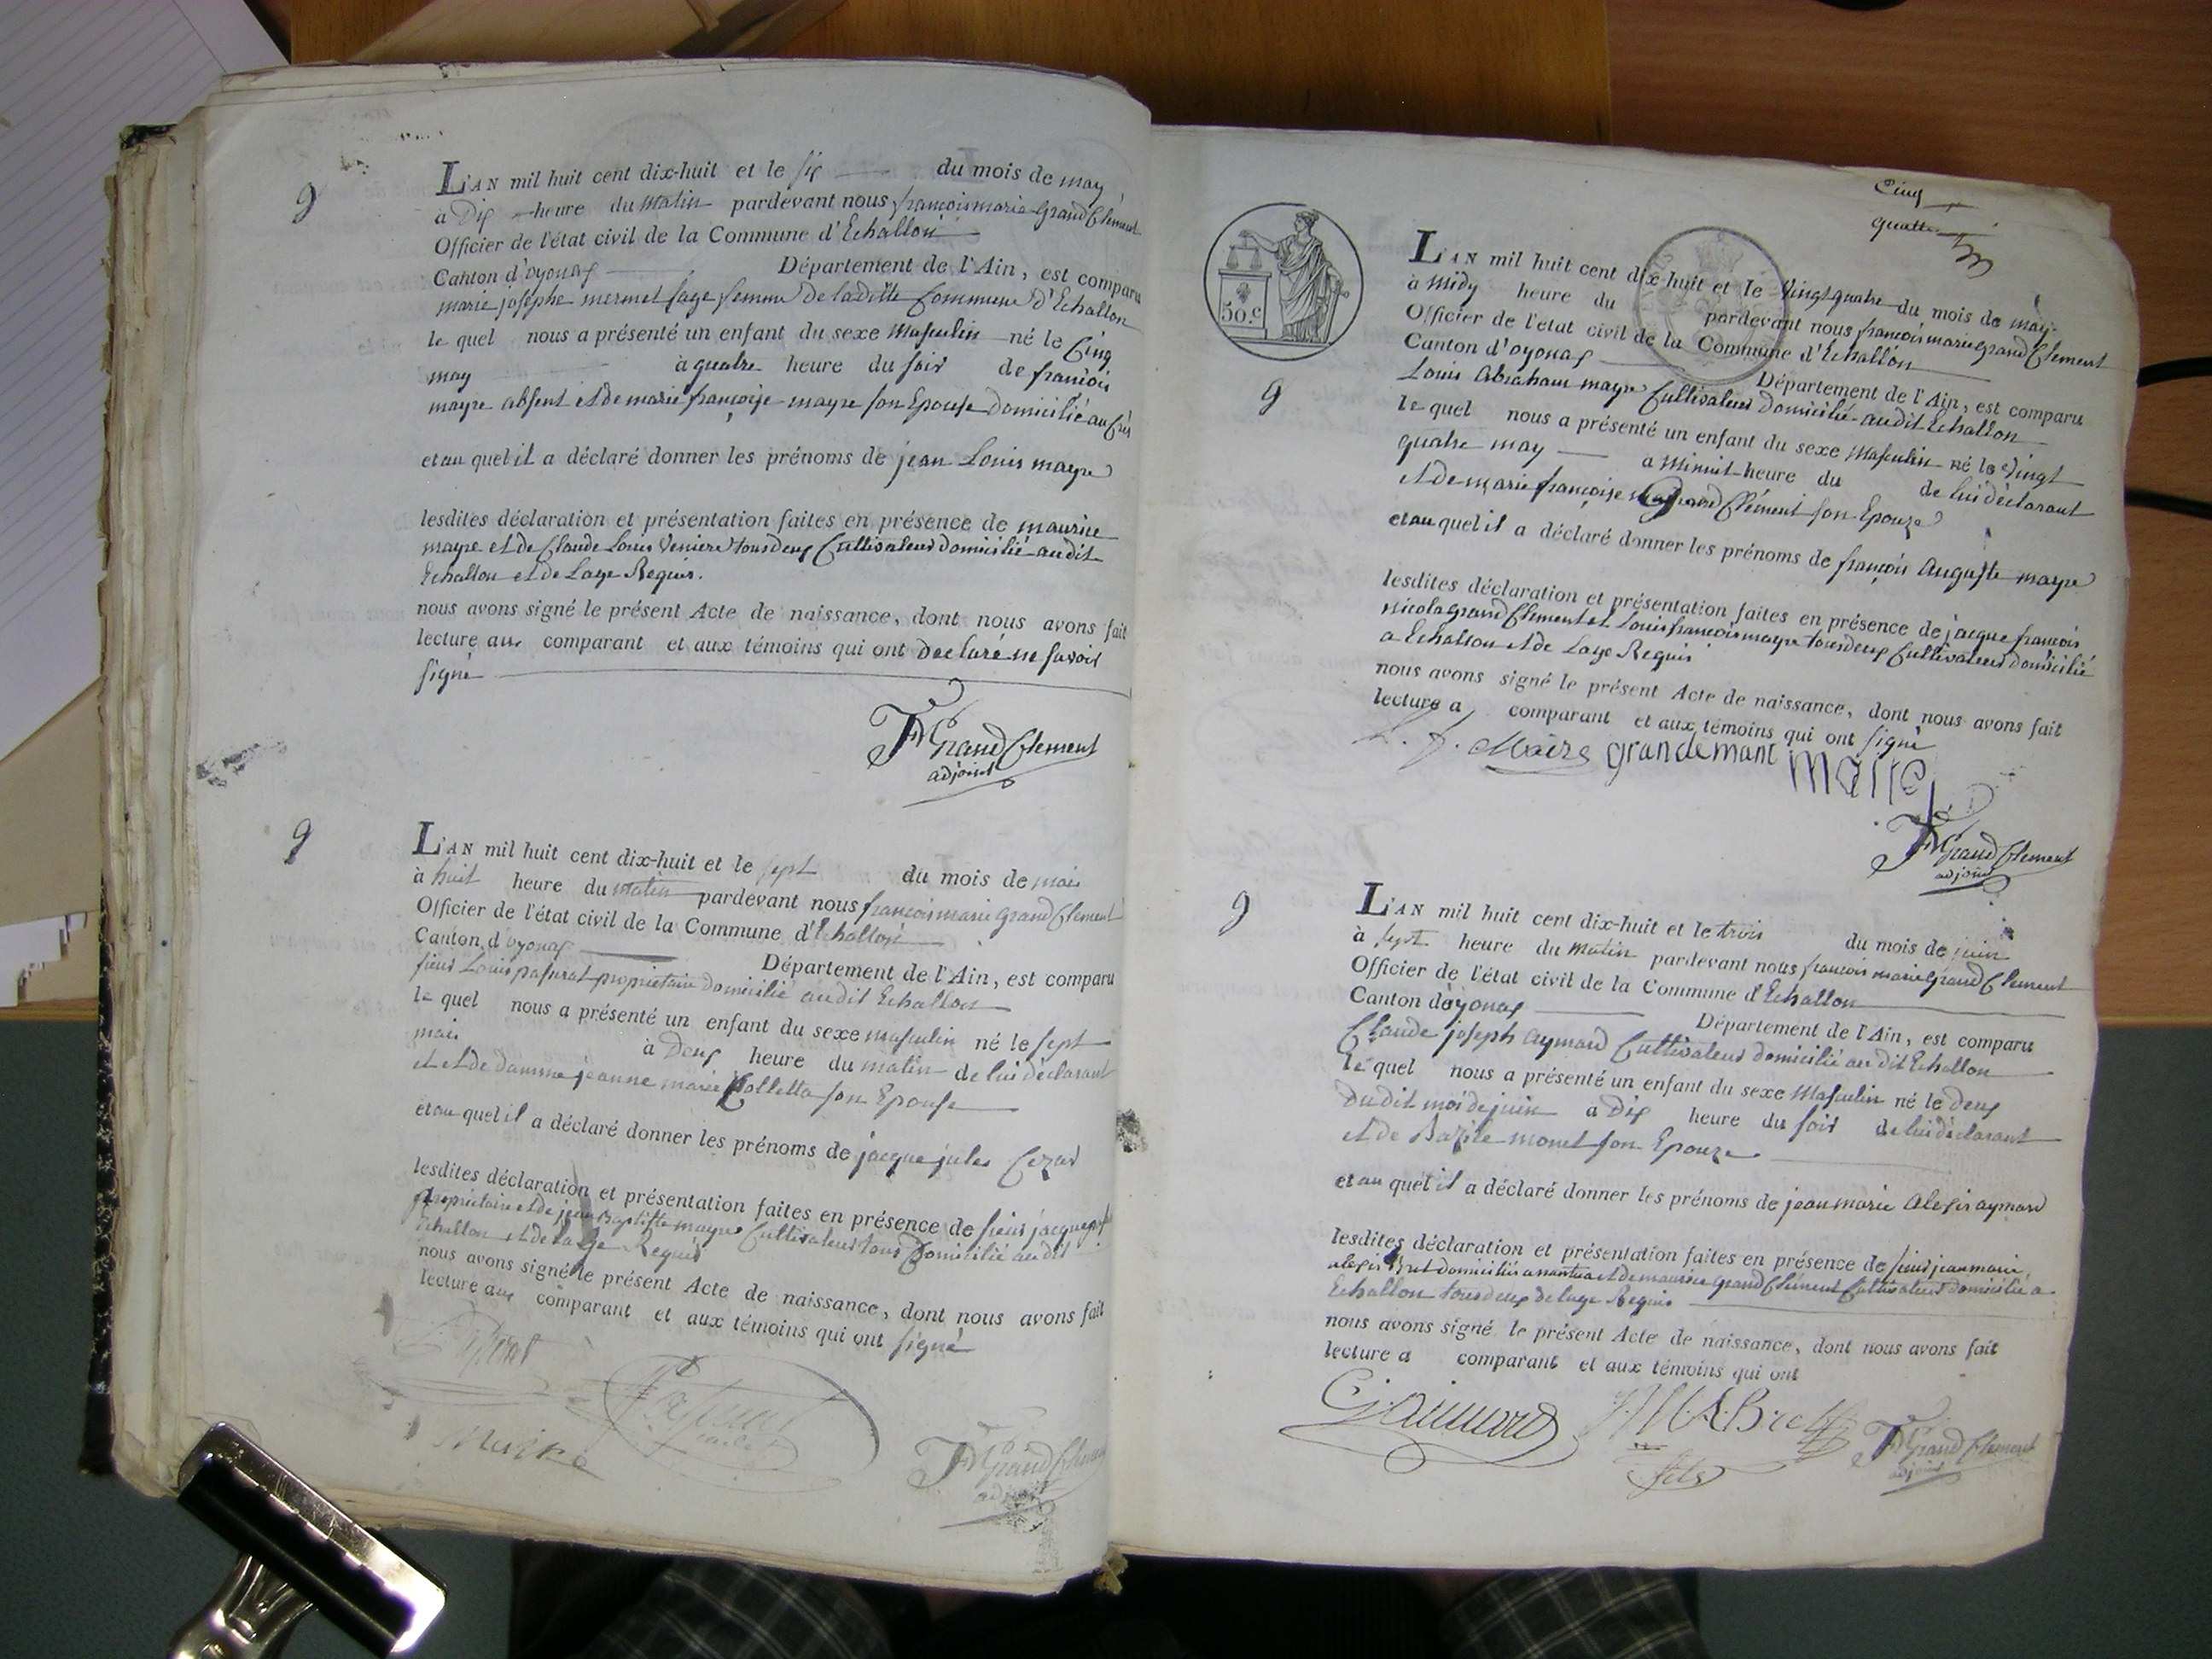 9
L'AN mil huit cent dix-huit et le six du mois de may
à Dix heure du matin pardevant nous françois marie Grand Clement
Officier de l'état civil de la Commune d'Echallon
Canton d'oyonax Département de l'Ain, est comparu
marie josephe mermet sage femme de laditte Commune d'Echallon
le quel nous a présenté un enfant du sexe Masculin né le Cinq
may à quatre heure du soir de francois
mayre absent et de marie françoise mayre son Epouse domicilié au Crès
et au quel il a déclaré donner les prénoms de jean Louis mayre
lesdites déclaration et présentation faites en présence de maurice
mayre et de Claude Louis Veniere tous deux Cultivateur domicilié audit
Echallon et de Lage Requis.
nous avons signé le présent Acte de naissance, dont nous avons fait
lecture aux comparant et aux témoins qui ont declaré ne savoir
signé
FM Grand Clement
adjoint
9
L'AN mil huit cent dix-huit et le sept du mois de mai
à huit heure du matin pardevant nous francois marie Grand Clement
Officier de l'état civil de la Commune d'Echallon
Canton d'oyonax Département de l'Ain, est comparu
sieur Louis pasurat proprietaire domicilié audit Echallon
le quel nous a présenté un enfant du sexe masculin né le sept
mai à Deux heure du matin de lui déclarant
et et de damme jeanne marie Colletta son Epouse
et au quel il a déclaré donner les prénoms de jacque jules Cezar
lesdites déclaration et présentation faites en présence de sieur jacque
proprietaire et de jean Baptiste mayre Cultivateur tous Domicilié audit
Echallon et de Lage Requis
nous avons signé le présent Acte de naissance, dont nous avons fait
lecture aux comparant et aux témoins qui ont signé
Maire
FM Grand Clement
adjoint
Cinq
quatre
50.c
9
L'AN mil huit cent dix-huit et le Vingt quatre du mois de may
à Midy heure du pardevant nous francois marie Grand Clement
Officier de l'état civil de la Commune d'Echallon
Canton d'oyonax Département de l'Ain, est comparu
Louis Abraham mayre Cultivateur domicilié audit Echallon
le quel nous a présenté un enfant du sexe Masculin né le Vingt
quatre may à Minuit heure du de lui déclarant
et de marie françoise Grand Clément son Epouze
et au quel il a déclaré donner les prénoms de françois Auguste mayre
lesdites déclaration et présentation faites en présence de jacque françois
nicola grand Clement et Louis francois mayre tous deux Cultivateur domicilié
a Echallon et de Lage Requis
nous avons signé le présent Acte de naissance, dont nous avons fait
lecture a comparant et aux témoins qui ont signé
L. f. Maire grandemant maire
FM Grand Clement
adjoint
9
L'AN mil huit cent dix-huit et le trois du mois de juin
à sept heure du Matin pardevant nous francois marie Grand Clement
Officier de l'état civil de la Commune d'Echallon
Canton d'oyonax Département de l'Ain, est comparu
Claude joseph aymard Cultivateur domicilié audit Echallon
le quel nous a présenté un enfant du sexe Masculin né le deux
Du dit moi de juin à Dix heure du soir de lui déclarant
et de Bazile monet son Epouze
et au quel il a déclaré donner les prénoms de jean marie Alexis aymard
lesdites déclaration et présentation faites en présence de sieur jean marie
alexis Bret domicilié a nantua et de maurice grand Clément Cultivateur domicilié a
Echallon tous deux de lage Requis
nous avons signé le présent Acte de naissance, dont nous avons fait
lecture a comparant et aux témoins qui ont
CJ aimard JMA Bret
fils
FM Grand Clement
adjoint